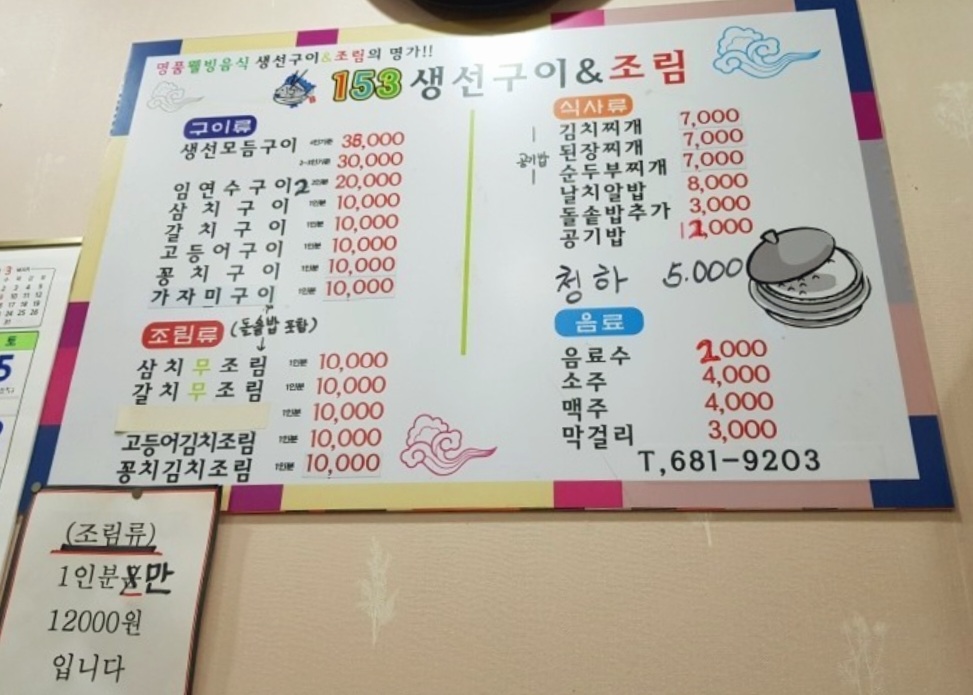 명품웰빙음식 생선구이&조림의 명가!!
153 생선구이&조림
구이류
생선모듬구이 38,000
30,000
임연수구이 2 20,000
삼치구이 1인분 10,000
갈치구이 1인분 10,000
고등어구이 1인분 10,000
꽁치구이 1인분 10,000
가자미구이 1인분 10,000
조림류 (돌솥밥 포함)
삼치무조림 1인분 10,000
갈치무조림 1인분 10,000
1인분 10,000
고등어김치조림 1인분 10,000
꽁치김치조림 1인분 10,000
식사류
공기밥
김치찌개 7,000
된장찌개 7,000
순두부찌개 7,000
날치알밥 8,000
돌솥밥추가 3,000
공기밥 1,000
청하 5.000
음료
음료수 2,000
소주 4,000
맥주 4,000
막걸리 3,000
T,681-9203
토
(조림류)
1인분 만
12000원
입니다